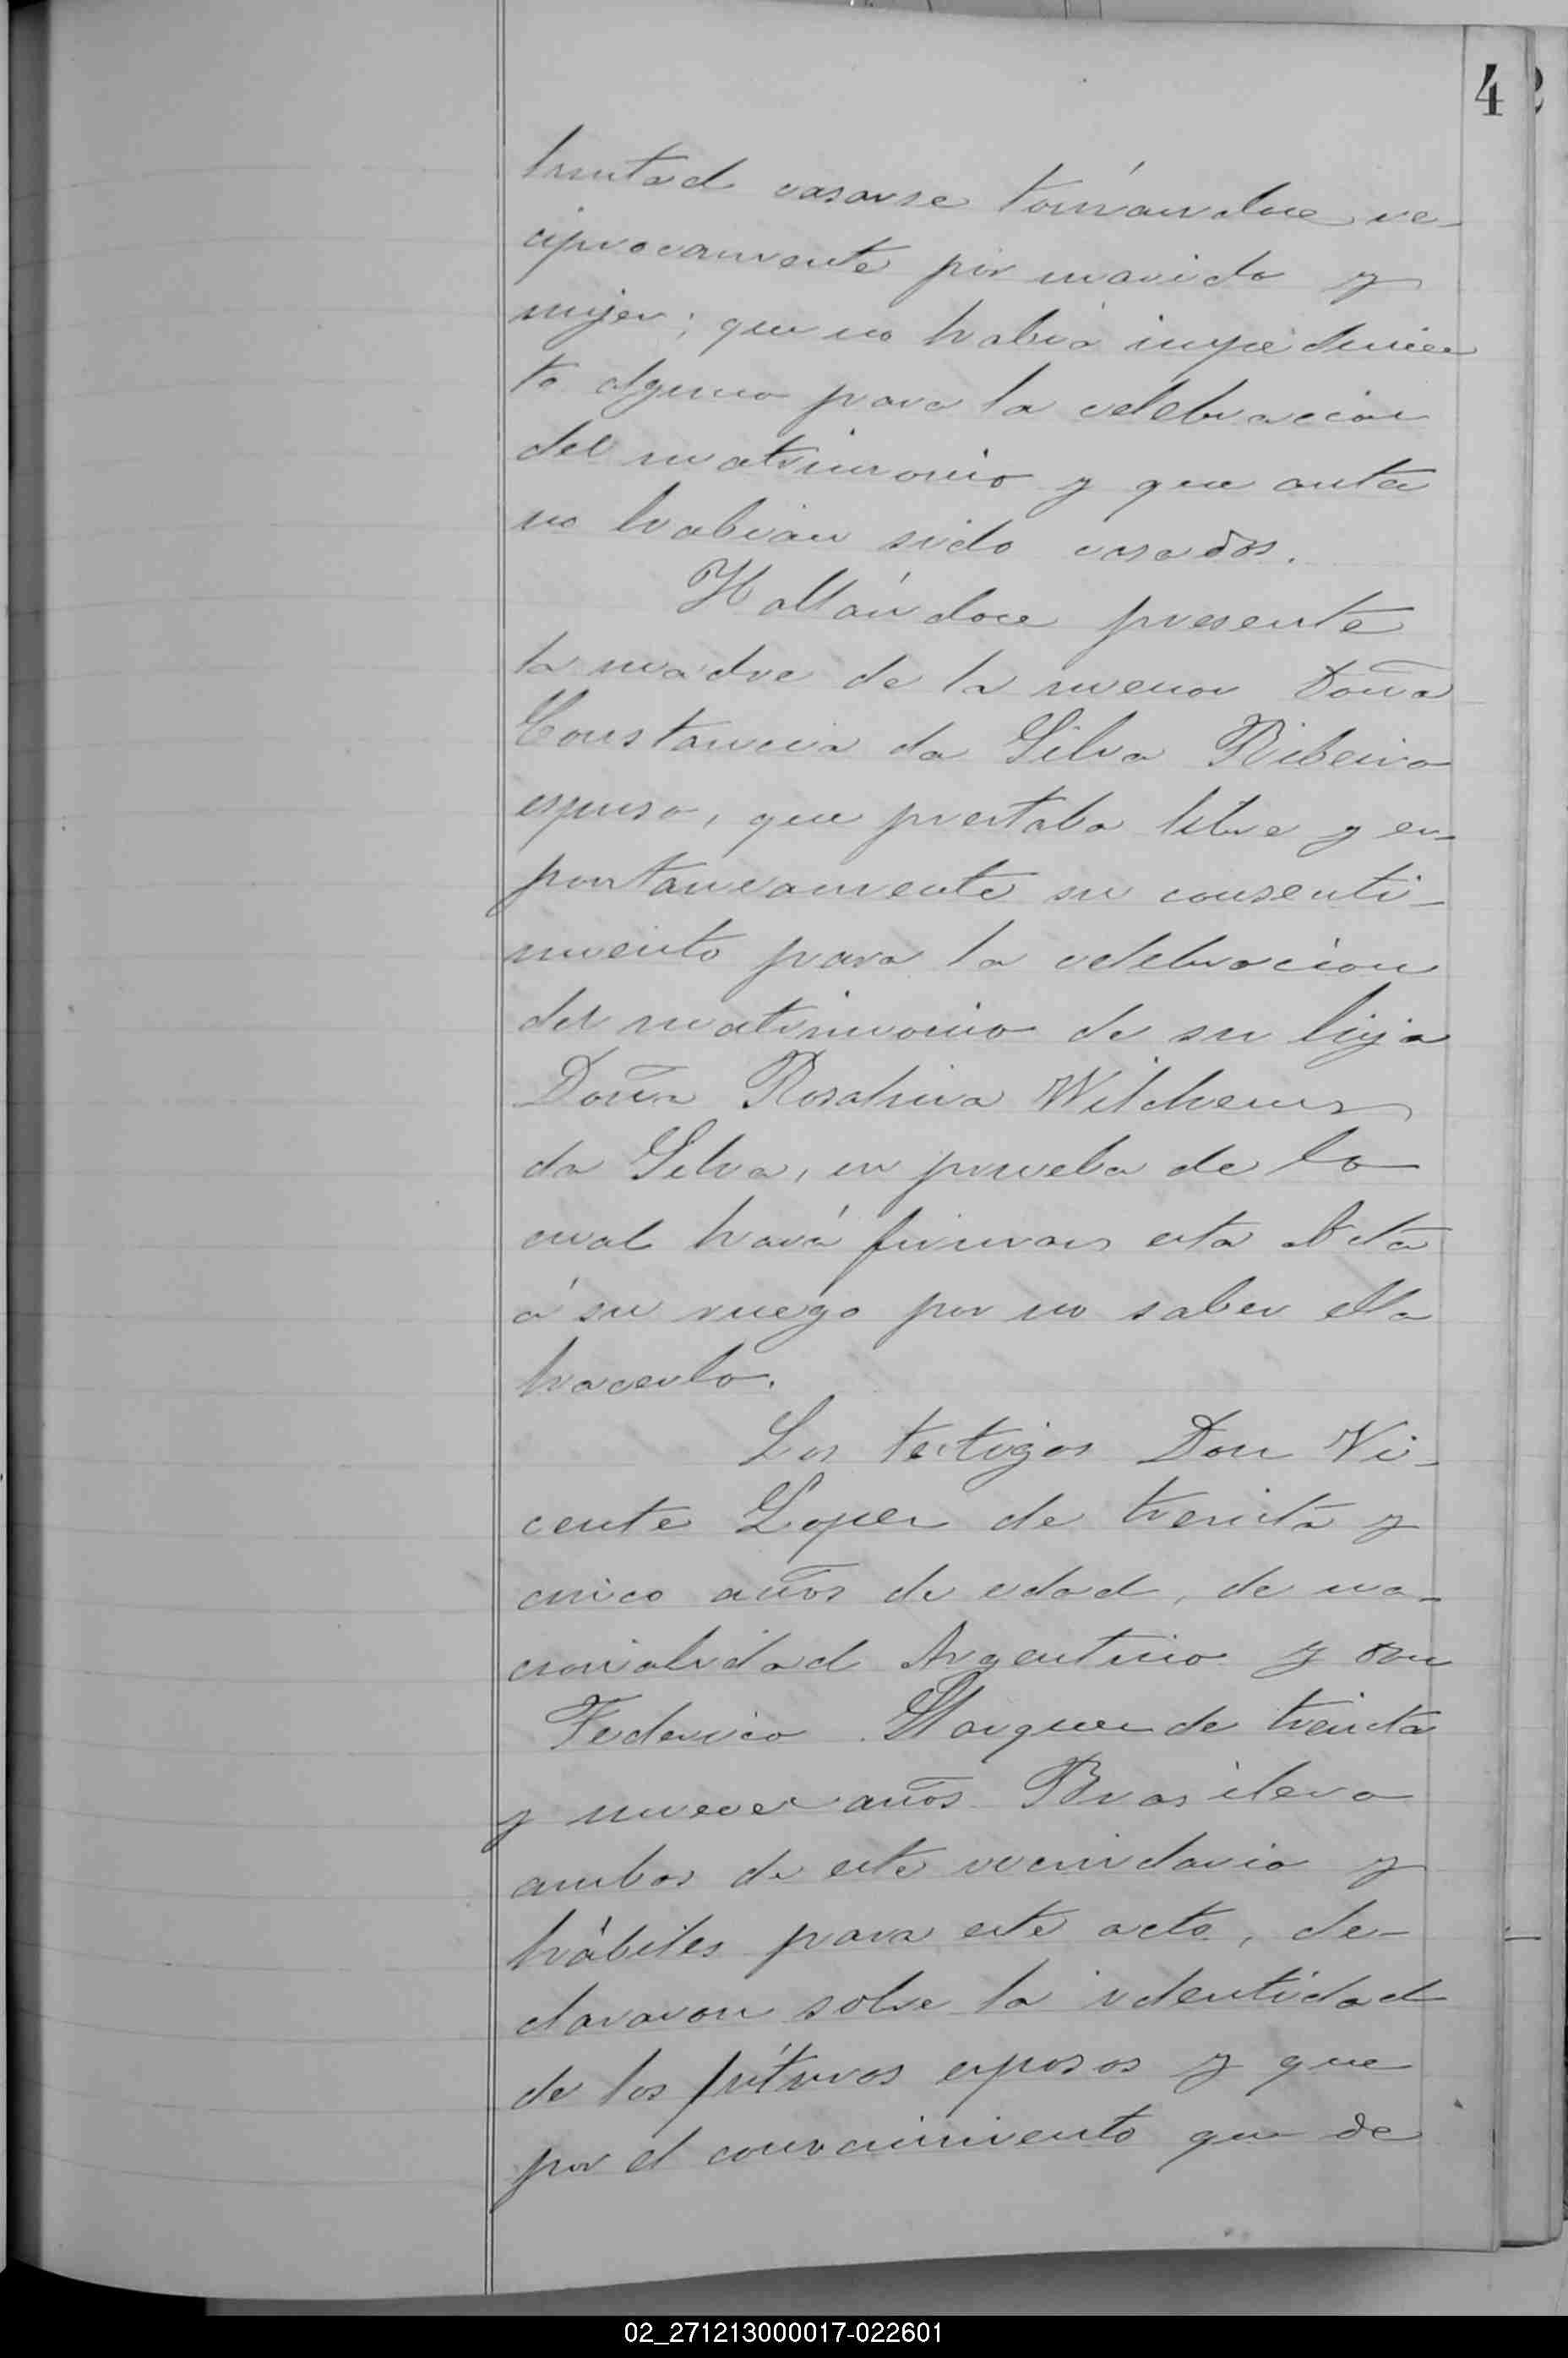 4
luntad casarse tomándoce re-
ciprocamente por marido y
mujer; que no habia impedimien
to alguno para la celebracion
del matrimonio y que antes
no habian sido casados.
Hallándoce presente
la madre de la menor Doña
Constancia da Silva Ribeiro
espuso, que prestaba libre y es-
pontaneamente su consenti-
miento para la celebracion
del matrimonio de su hija
Doña Rosalina Wilchems
da Silva, en prueba de lo
cual hará firmar esta Acta
á su ruego por no saber ella
hacerlo.
Los testigos Don Vi-
cente Lopez de treinta y
cinco años de edad, de na-
cionalidad Argentino y don
Federico Marquez de treinta
y nueve años Brasilero
ambos de este vecindario y
hábiles para este acto, de-
clararon sobre la identidad
de los fúturos esposos y que
por el conocimiento que de
02_271213000017-022601